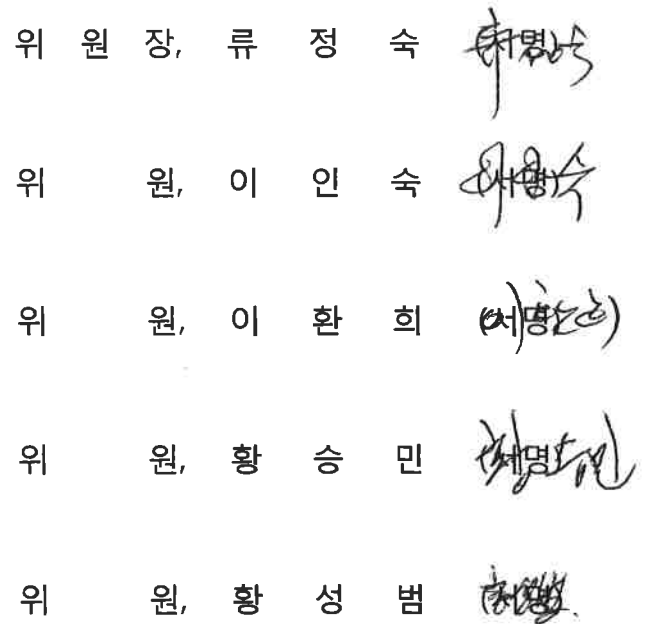 위 원 장, 류 정 숙 (서명)
위 원, 이 인 숙 (서명)
위 원, 이 환 희 (서명)
위 원, 황 승 민 (서명)
위 원, 황 성 범 (서명)